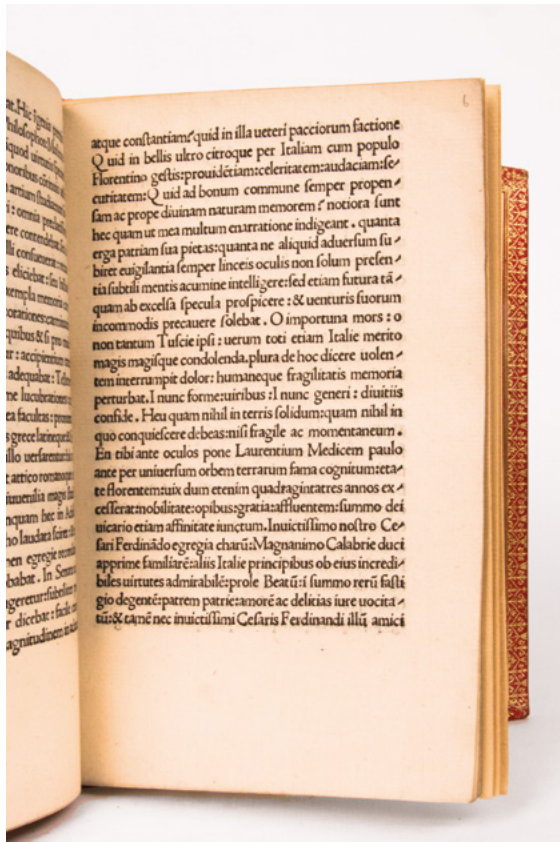 at. Hic
Philosopho
quod
noribus
artium studia
: omnia
ere contende
lli consue
s eliciebat : seu
exempla memoria
quibus & si pro
r : accipientium
adequabat : T
me lucubration
ea facultas : pr
s grece latineque
illo uersare
attico romanoq
iuuenilia magis
nquam hec in
ho laudara
men egregie
babat . In
ngeretur
r dicebat : facile
agnitudinem
6
atque conſtantiam? quid in illa ueteri pacciorum factione
Quid in bellis ultro citroque per Italiam cum populo
Florentino geſtis:prouidētiam:celeritatem:audaciam:ſe
curitatem: Quid ad bonum commune ſemper propen ⸗
ſam ac prope diuinam naturam memorem? notiora ſunt
hec quam ut mea multum enarratione indigeant . quanta
erga patriam ſua pietas:quanta ne aliquid aduerſum ſu ⸗
biret euigilantia ſemper linceis oculis non ſolum preſen ⸗
tia ſubtili mentis acumine intelligere:ſed etiam futura tā ⸗
quam ab excelſa ſpecula proſpicere : & uenturis ſuorum
incommodis precauere ſolebat . O importuna mors : o
non tantum Tuſcie ipſi : uerum toti etiam Italie merito
magis magiſque condolenda. plura de hoc dicere uolen ⸗
tem interrumpit dolor: humaneque fragilitatis memoria
perturbat. I nunc forme:uiribus : I nunc generi : diuitiis
confide . Heu quam nihil in terris ſolidum:quam nihil in
quo conquieſcere debeas:niſi fragile ac momentaneum .
En tibi ante oculos pone Laurentium Medicem paulo
ante per uniuerſum orbem terrarum fama cognitum:eta ⸗
te florentem:uix dum etenim quadragintatres annos ex ⸗
ceſſerat:nobilitate:opibus:gratia:affluentem:ſummo dei
uicario etiam affinitate iunctum. Inuictiſſimo noſtro Ce ⸗
ſari Ferdinādo egregia charū: Magnanimo Calabrie duci
apprime familiarē:aliis Italie principibus ob eius incredi ⸗
biles uirtutes admirabilē:prole Beatū:ī ſummo rerū faſti
gio degentē:patrem patrie:amorē ac delicias iure uocita ⸗
tū:& tamē nec inuictiſſimi Ceſaris Ferdinandi illū amici